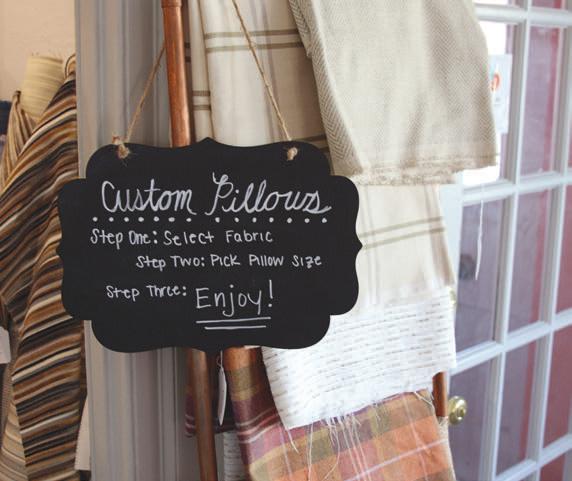 Custom Pillows
Step One: Select Fabric
Step Two: Pick Pillow Size
Step Three: Enjoy!